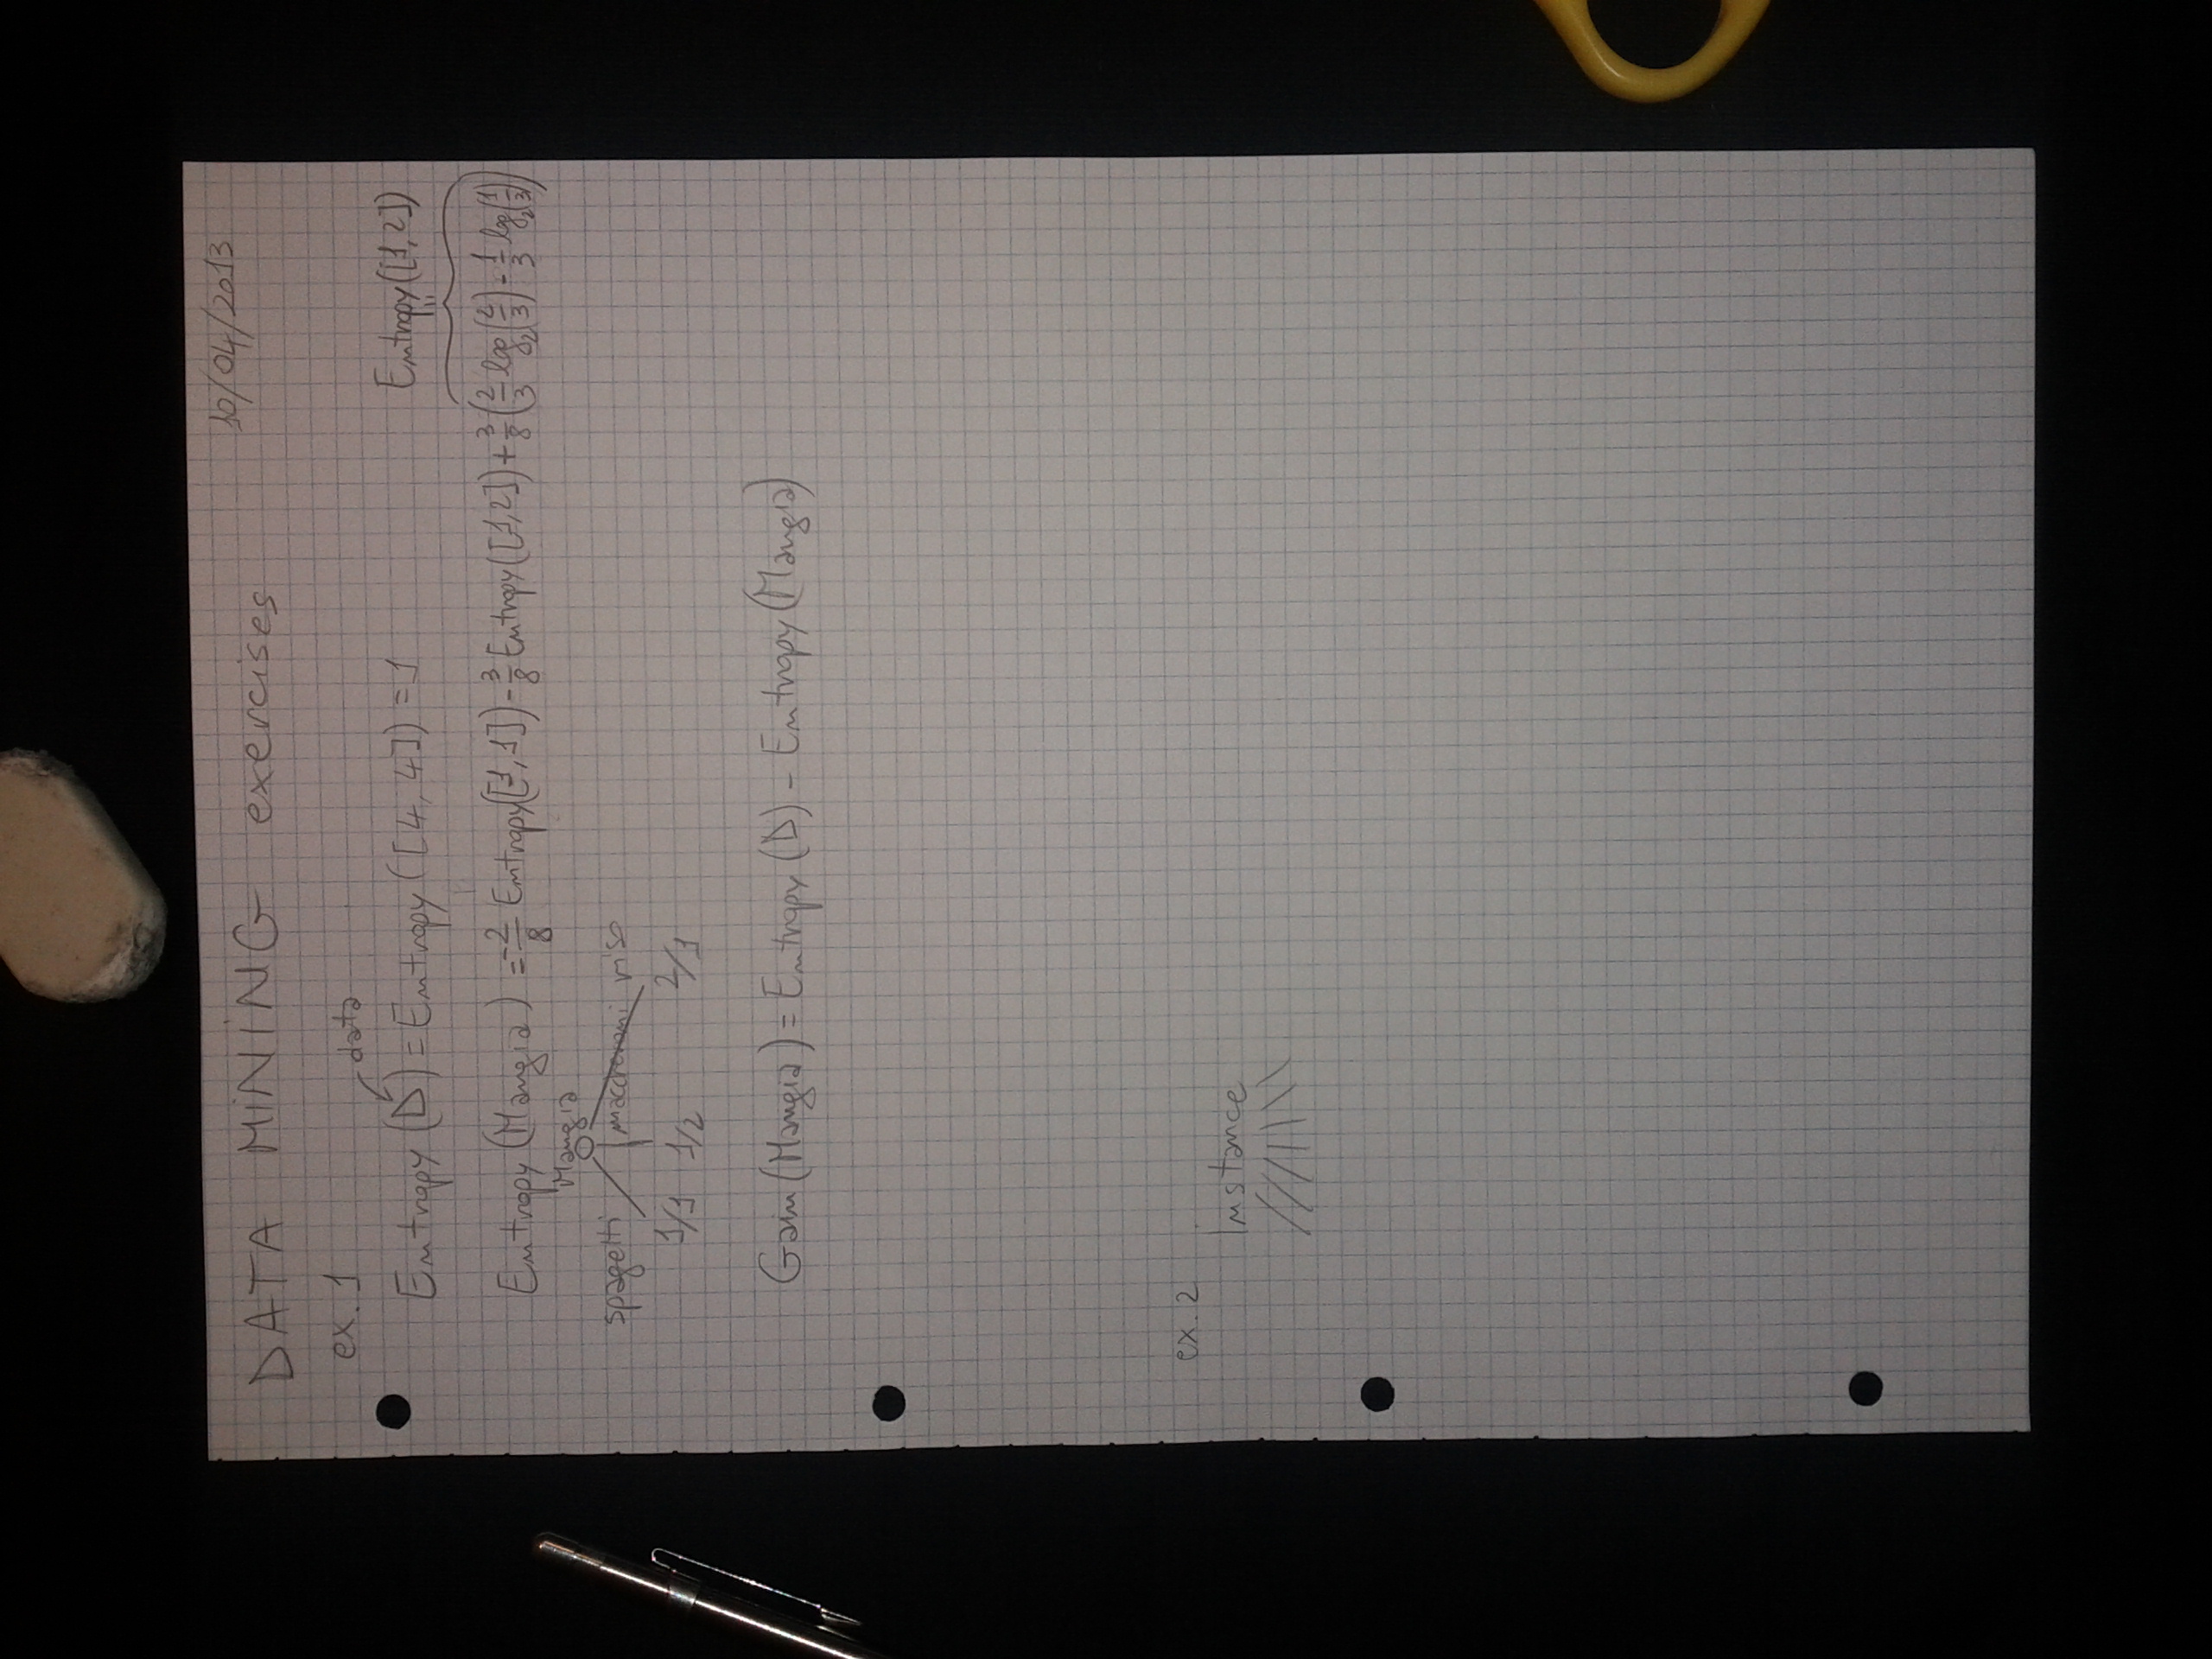 10/04/2013
DATA MINING exercises
ex. 1
data
Entropy (D) = Entropy ([4,4]) = 1
Entropy([1,2])
"
Entropy (Mangia) = -2/8 Entropy([1,1]) - 3/8 Entropy([1,2]) + 3/8 (2/3 log₂(2/3) - 1/3 log₂(1/3))
Mangia
spagetti maccheroni riso
1/1 1/2 2/1
Gain (Mangia) = Entropy (D) - Entropy (Mangia)
ex. 2
Instance